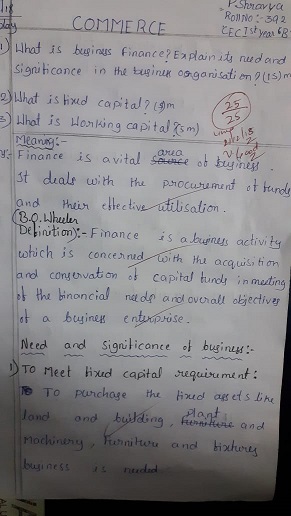 P.Shravya
COMMERCE
Roll No:- 392
CEC Ist year
1) What is business finance? Explain its need and
significance in the business organisation? (15)m
2) What is fixed capital? (5)m
3) What is Working capital? (5m)
25/25
Meaning:-
Finance is a vital source area of business.
It deals with the procurement of funds
and their effective utilisation.
(B.O. Wheeler
Definition):- Finance is a business activity
which is concerned with the acquisition
and conservation of capital funds in meeting
of the financial needs and overall objectives
of a business enterprise.
Need and Significance of business:-
1) To Meet fixed capital requirement:
To purchase the fixed assets like
land and building, furniture plant and
Machinery, furniture and fixtures
business is needed